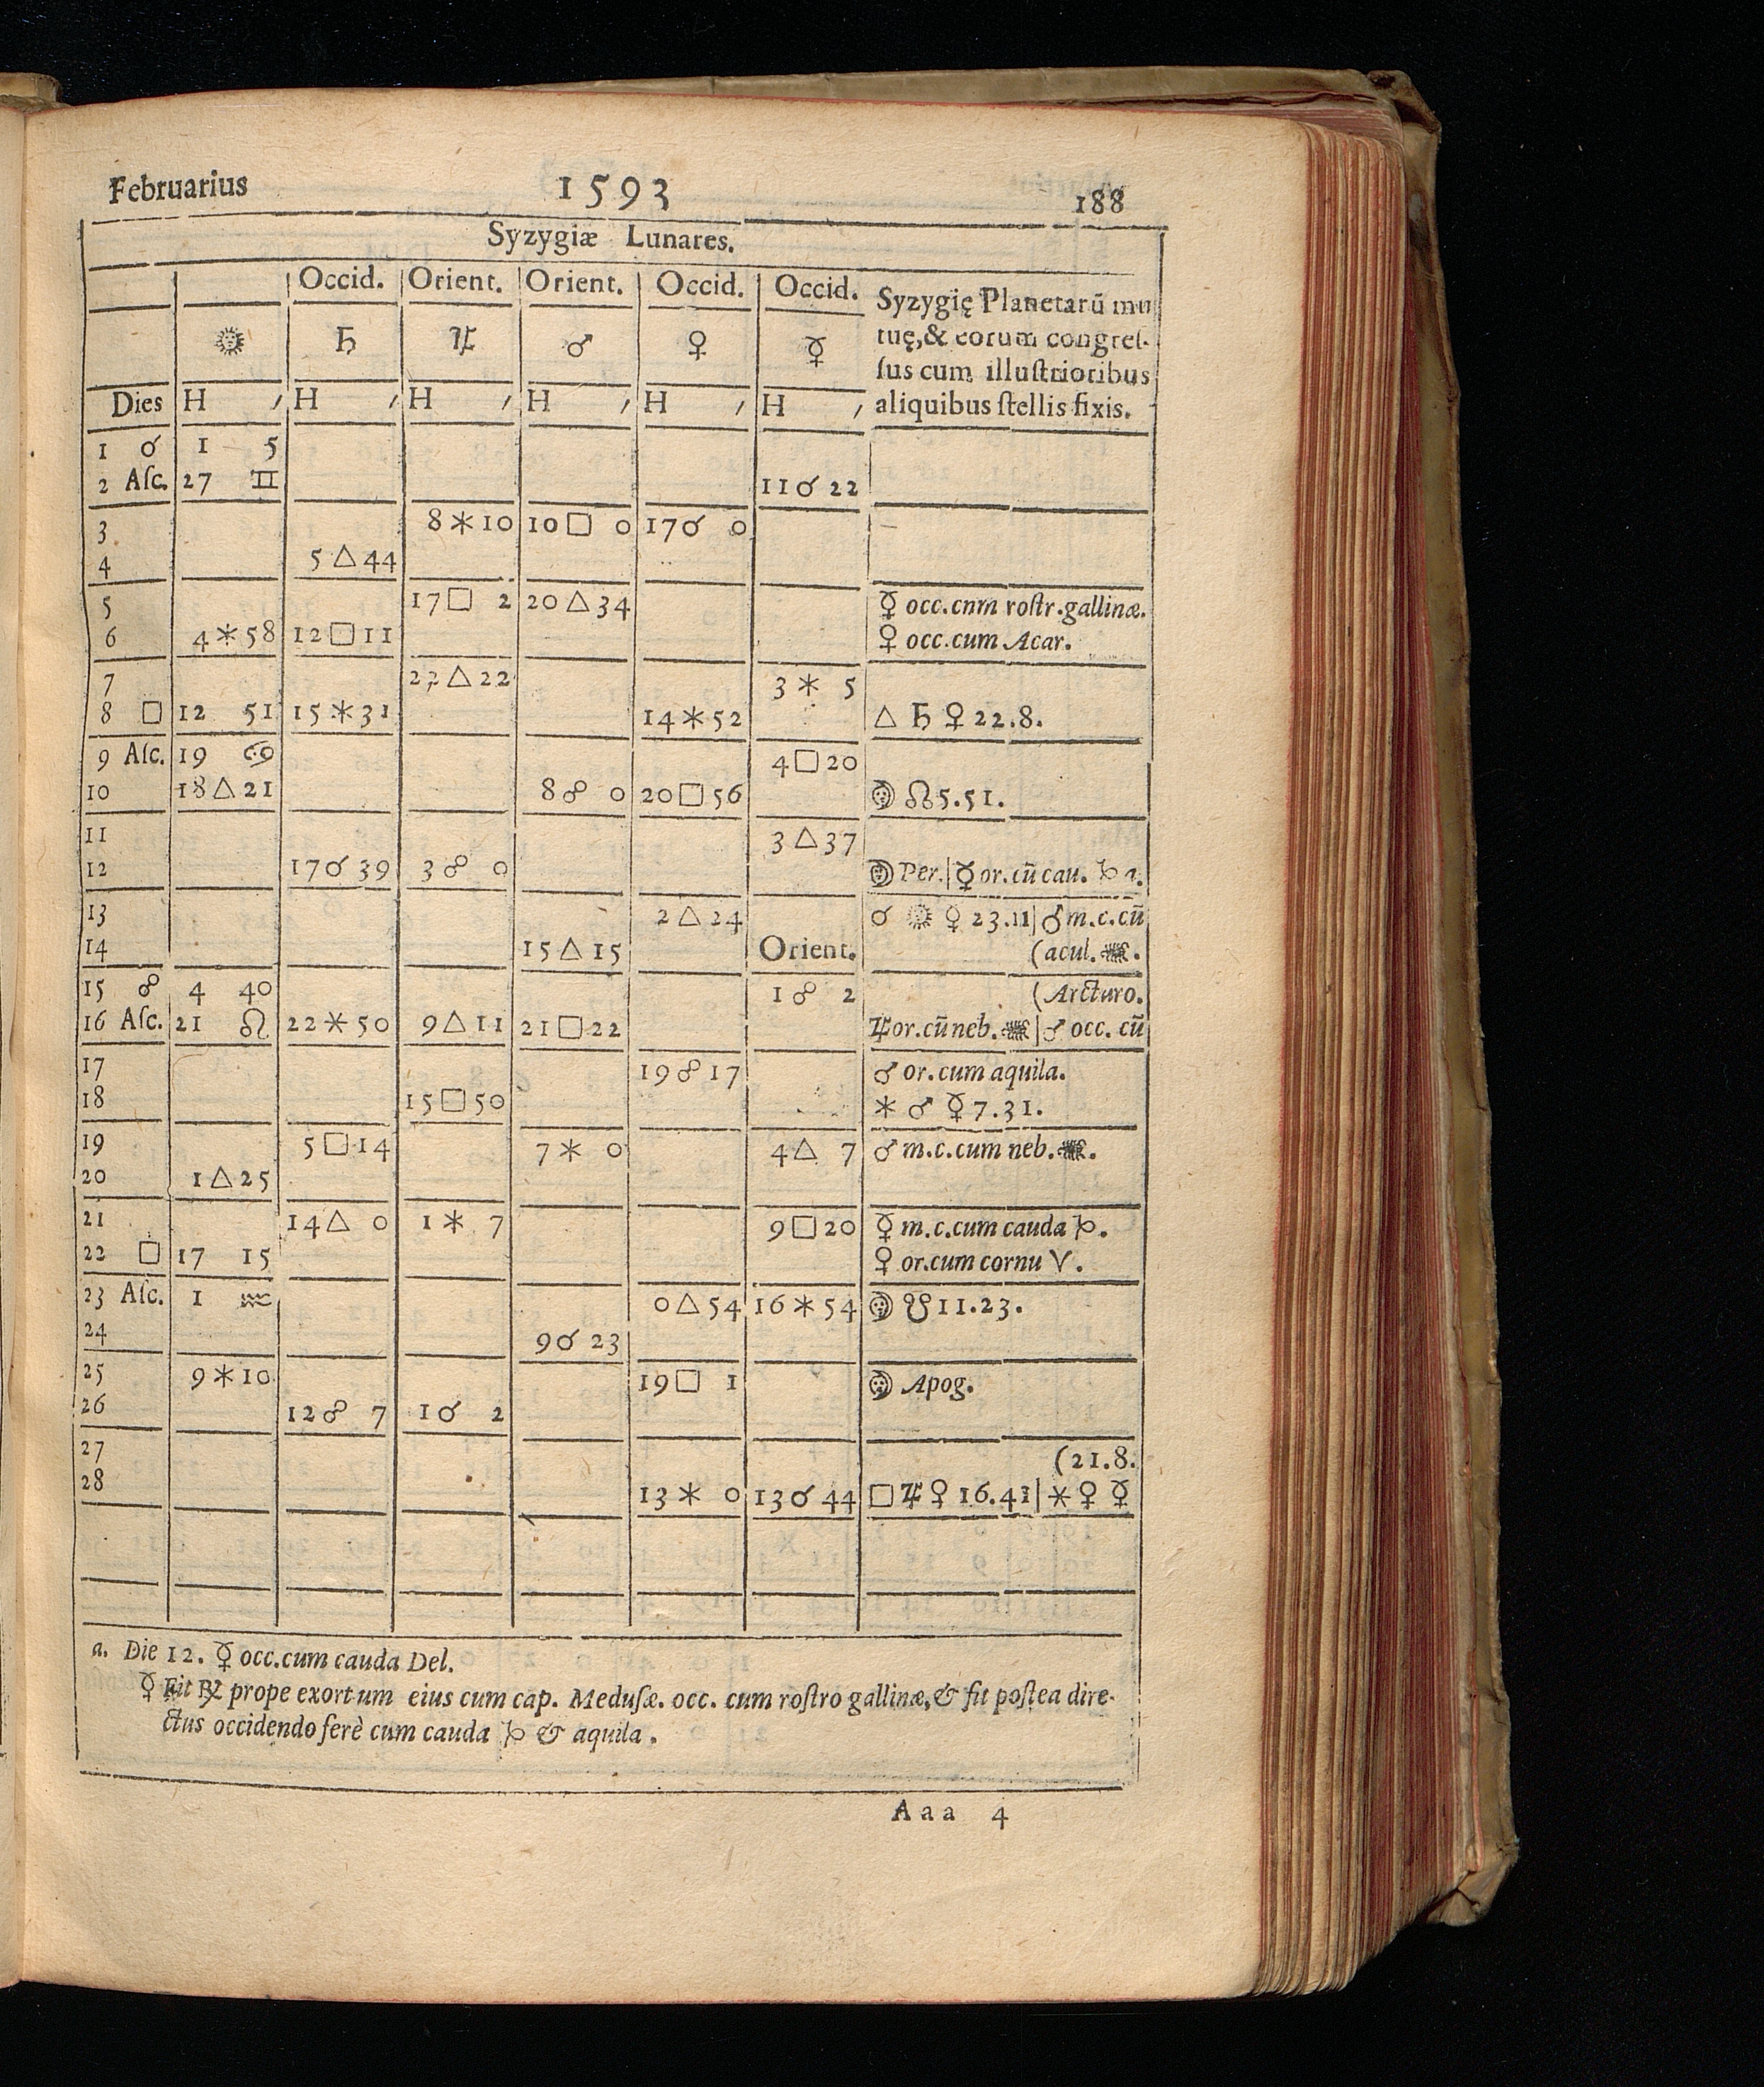 Februarius 1593 188
Syzygiæ Lunares.
Occid. Orient. Orient. Occid. Occid. Syzygię Planetarũ mu
☉ ♄ ♃ ♂ ♀ ☿ tuę,& eorum congres-
ſus cum illuſtrioribus
Dies H ′ H ′ H ′ H ′ H ′ H ′ aliquibus ſtellis fixis.
1 ☌ 1 5
2 Aſc. 27 ♊ 11☌22
3 8⚹10 10□0 17☌0
4 5△44
5 17□2 20△34 ☿ occ.cnm roſtr.gallinæ.
6 4⚹58 12□11 ♀ occ.cum Acar.
7 22△22 3⚹5
8 □ 12 51 15⚹31 14⚹52 △ ♄ ♀ 22.8.
9 Aſc. 19 ♋ 4□20
10 18△21 8☍0 20□56 ☽ ☊ 5.51.
11 3△37
12 17☌39 3☍0 ☽ Per.|☿ or.cũ cau. ♑ a.
13 2△24 ☌ ☉ ☿ 23.11|♂ m.c.cũ
14 15△15 Orient. (acul. ♏.
15 ☍ 4 40 1☍2 (Arcturo.
16 Aſc. 21 ♌ 22⚹50 9△11 21□22 ♃or.cũ neb.♏|♂ occ. cũ
17 19☍17 ♂ or.cum aquila.
18 15□50 ⚹ ♂ ☿ 7.31.
19 5□14 7⚹0 4△7 ♂ m.c.cum neb.♏.
20 1△25
21 14△0 1⚹7 9□20 ☿ m.c.cum cauda ♑.
22 □ 17 15 ♀ or.cum cornu ♈.
23 Aſc. 1 ♒ 0△54 16⚹54 ☽ ☋ 11.23.
24 9☌23
25 9⚹10 19□1 ☽ Apog.
26 12☍7 1☌2
27 (21.8.
28 13⚹0 13☌44 □ ♃ ♀ 16.41|⚹ ♀ ☿
a. Die 12. ☿ occ.cum cauda Del.
☿ Fit ℞ prope exortum eius cum cap. Meduſæ. occ. cum roſtro gallinæ,& fit poſtea dire-
ctus occidendo ferè cum cauda ♑ & aquila.
Aaa 4